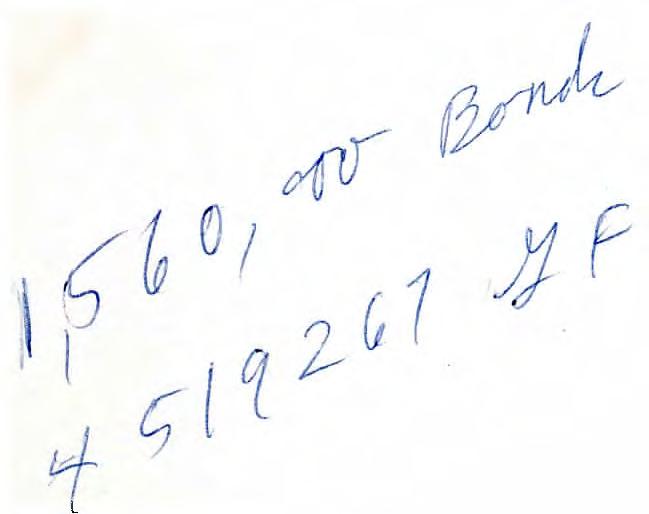 1,560,000 Bonds
4519267 GF